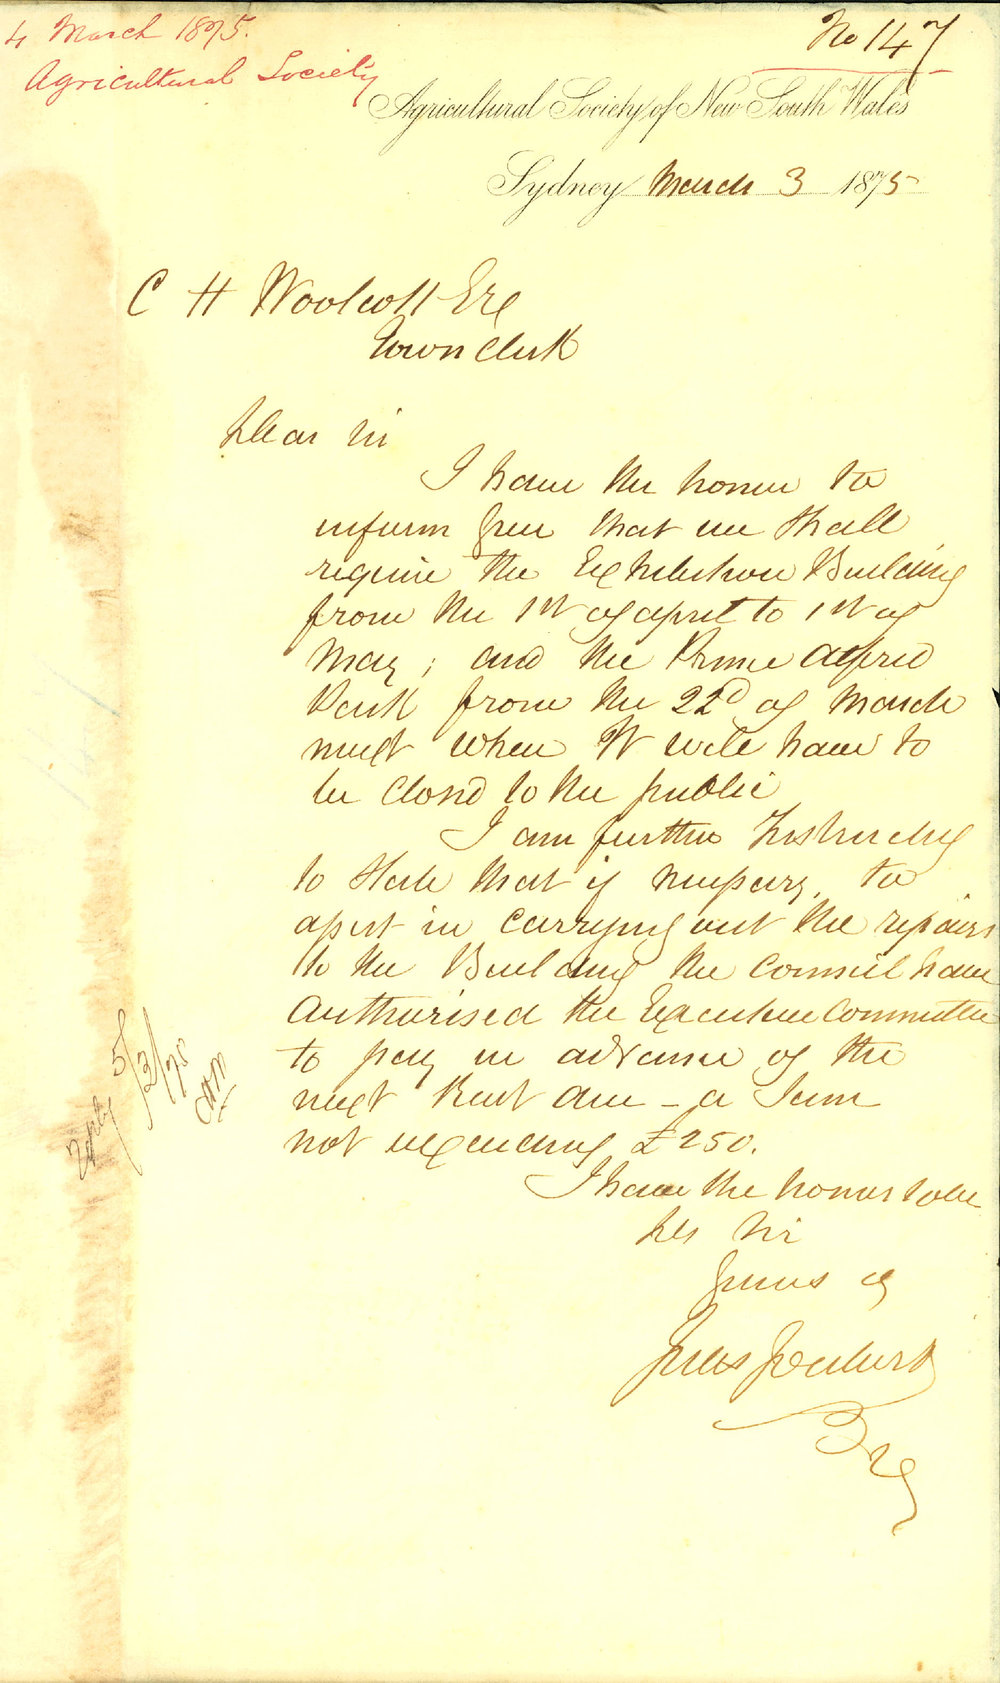 4 March 1875.
Agricultural Society
No 147
Agricultural Society of New South Wales
Sydney March 3 1875
C H Woolcott Esq
Town Clerk
Dear Sir
I have the honor to
inform you that we shall
require the Exhibition Building
from the 1st of april to 1st of
May; and the Prince Alfred
Park from the 22d of March
next when it will have to
be closed to the public
I am further Instructed
to State that if necessary, to
assist in carrying out the repairs
to the Building the Council have
Authorised the Executive Committee
to pay in advance of the
next Rent due - a Sum
not exceeding £250.
I have the honor to be
Sir
yours
Jules Joubert
Sec
5/3/75